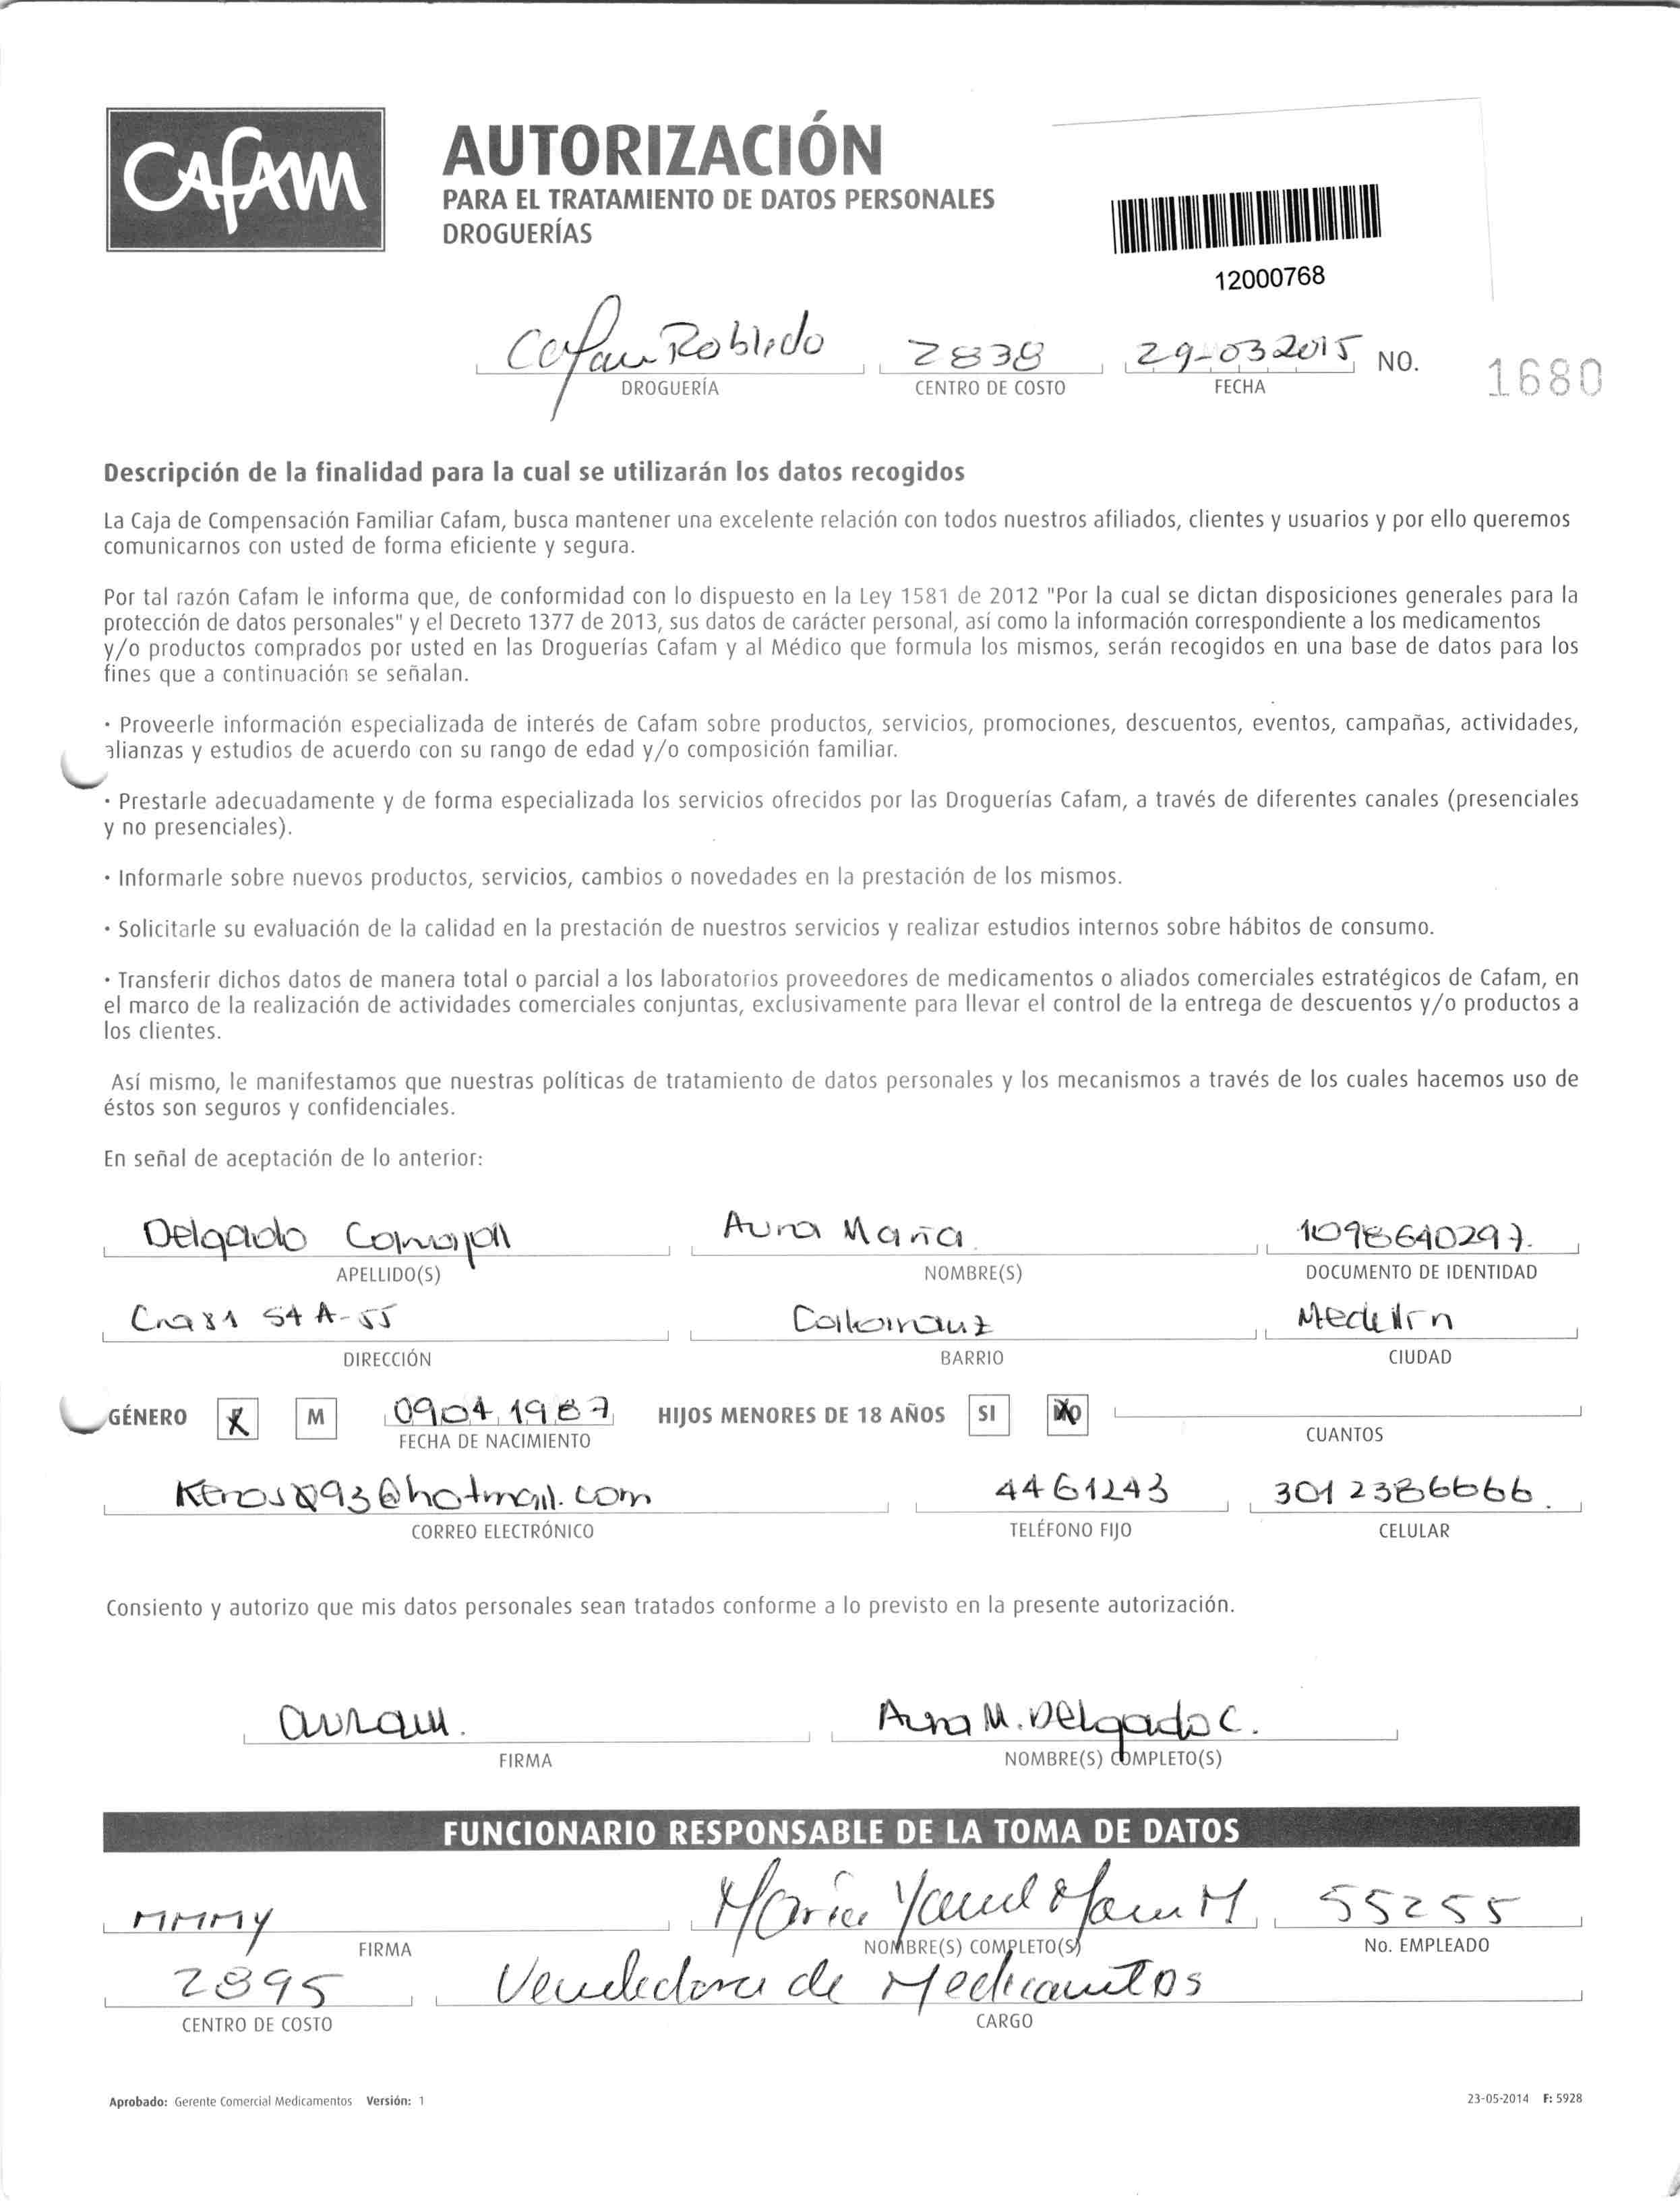 CAFAM
AUTORIZACIÓN
PARA EL TRATAMIENTO DE DATOS PERSONALES
DROGUERÍAS
12000768
Cafam Robledo 2838 29-03 2015 NO. 1680
DROGUERÍA CENTRO DE COSTO FECHA
Descripción de la finalidad para la cual se utilizarán los datos recogidos
La Caja de Compensación Familiar Cafam, busca mantener una excelente relación con todos nuestros afiliados, clientes y usuarios y por ello queremos
comunicarnos con usted de forma eficiente y segura.
Por tal razón Cafam le informa que, de conformidad con lo dispuesto en la Ley 1581 de 2012 "Por la cual se dictan disposiciones generales para la
protección de datos personales" y el Decreto 1377 de 2013, sus datos de carácter personal, así como la información correspondiente a los medicamentos
y/o productos comprados por usted en las Droguerías Cafam y al Médico que formula los mismos, serán recogidos en una base de datos para los
fines que a continuación se señalan.
· Proveerle información especializada de interés de Cafam sobre productos, servicios, promociones, descuentos, eventos, campañas, actividades,
alianzas y estudios de acuerdo con su rango de edad y/o composición familiar.
· Prestarle adecuadamente y de forma especializada los servicios ofrecidos por las Droguerías Cafam, a través de diferentes canales (presenciales
y no presenciales).
· Informarle sobre nuevos productos, servicios, cambios o novedades en la prestación de los mismos.
· Solicitarle su evaluación de la calidad en la prestación de nuestros servicios y realizar estudios internos sobre hábitos de consumo.
· Transferir dichos datos de manera total o parcial a los laboratorios proveedores de medicamentos o aliados comerciales estratégicos de Cafam, en
el marco de la realización de actividades comerciales conjuntas, exclusivamente para llevar el control de la entrega de descuentos y/o productos a
los clientes.
Así mismo, le manifestamos que nuestras políticas de tratamiento de datos personales y los mecanismos a través de los cuales hacemos uso de
éstos son seguros y confidenciales.
En señal de aceptación de lo anterior:
Delgado Aura Maria 1098640297.
APELLIDO(S) NOMBRE(S) DOCUMENTO DE IDENTIDAD
Cra 81 54 A-55 Medellin
DIRECCIÓN BARRIO CIUDAD
GÉNERO F M 09 04 1987 HIJOS MENORES DE 18 AÑOS SI NO
FECHA DE NACIMIENTO CUANTOS
4461243 3012386666.
CORREO ELECTRÓNICO TELÉFONO FIJO CELULAR
Consiento y autorizo que mis datos personales sean tratados conforme a lo previsto en la presente autorización.
Aura M. Delgado C.
FIRMA NOMBRE(S) COMPLETO(S)
FUNCIONARIO RESPONSABLE DE LA TOMA DE DATOS
MMMY Maria M 55255
FIRMA NOMBRE(S) COMPLETO(S) No. EMPLEADO
2895 Vendedora de Medicamentos
CENTRO DE COSTO CARGO
Aprobado: Gerente Comercial Medicamentos Versión: 1 23-05-2014 F: 5928